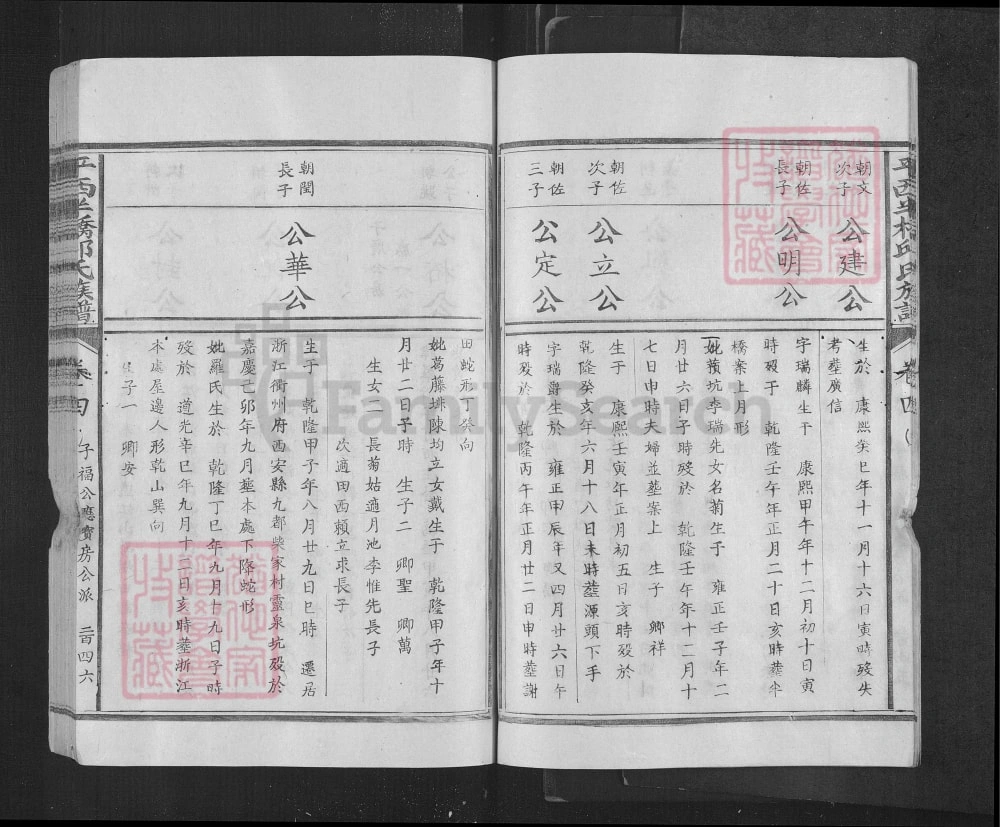 平西半橋邱氏族譜
卷四
朝文
次子
公建公
生於 康熙癸巳年十一月十六日寅時歿失
考塟廣信
朝佐
長子
公明公
字瑞麟生于 康熙甲午年十二月初十日寅
時歿于 乾隆壬午年正月二十日亥時塟半
橋案上月形
妣積坑李瑞先女名菊生于 雍正壬子年二
月廿六日子時歿於 乾隆壬午年十二月十
七日申時夫婦並塟案上 生子 卿祥
朝佐
次子
公立公
生于 康熙壬寅年正月初五日亥時歿於
乾隆癸亥年六月十八日未時塟源頭下手
朝佐
三子
公定公
字瑞爵生於 雍正甲辰年又四月廿六日午
時歿於 乾隆丙午年正月廿二日申時塟謝
田蛇形丁癸向
妣葛藤排陳均立女戴生于 乾隆甲子年十
月廿二日子時 生子二 卿聖 卿萬
生女二 長菊姑適月池李惟先長子
次適田西賴立求長子
朝閏
長子
公華公
生于 乾隆甲子年八月廿九日巳時 遷居
浙江衢州府西安縣九都柴家村靈泉坑歿於
嘉慶己卯年九月塟本處下降蛇形
妣羅氏生於 乾隆丁巳年九月十九日子時
歿於 道光辛巳年九月十三日亥時塟浙江
本處屋邊人形乾山巽向
生子一 卿安
平西半橋邱氏族譜
卷四
子福公應寶房公派
二百四六
FamilySearch